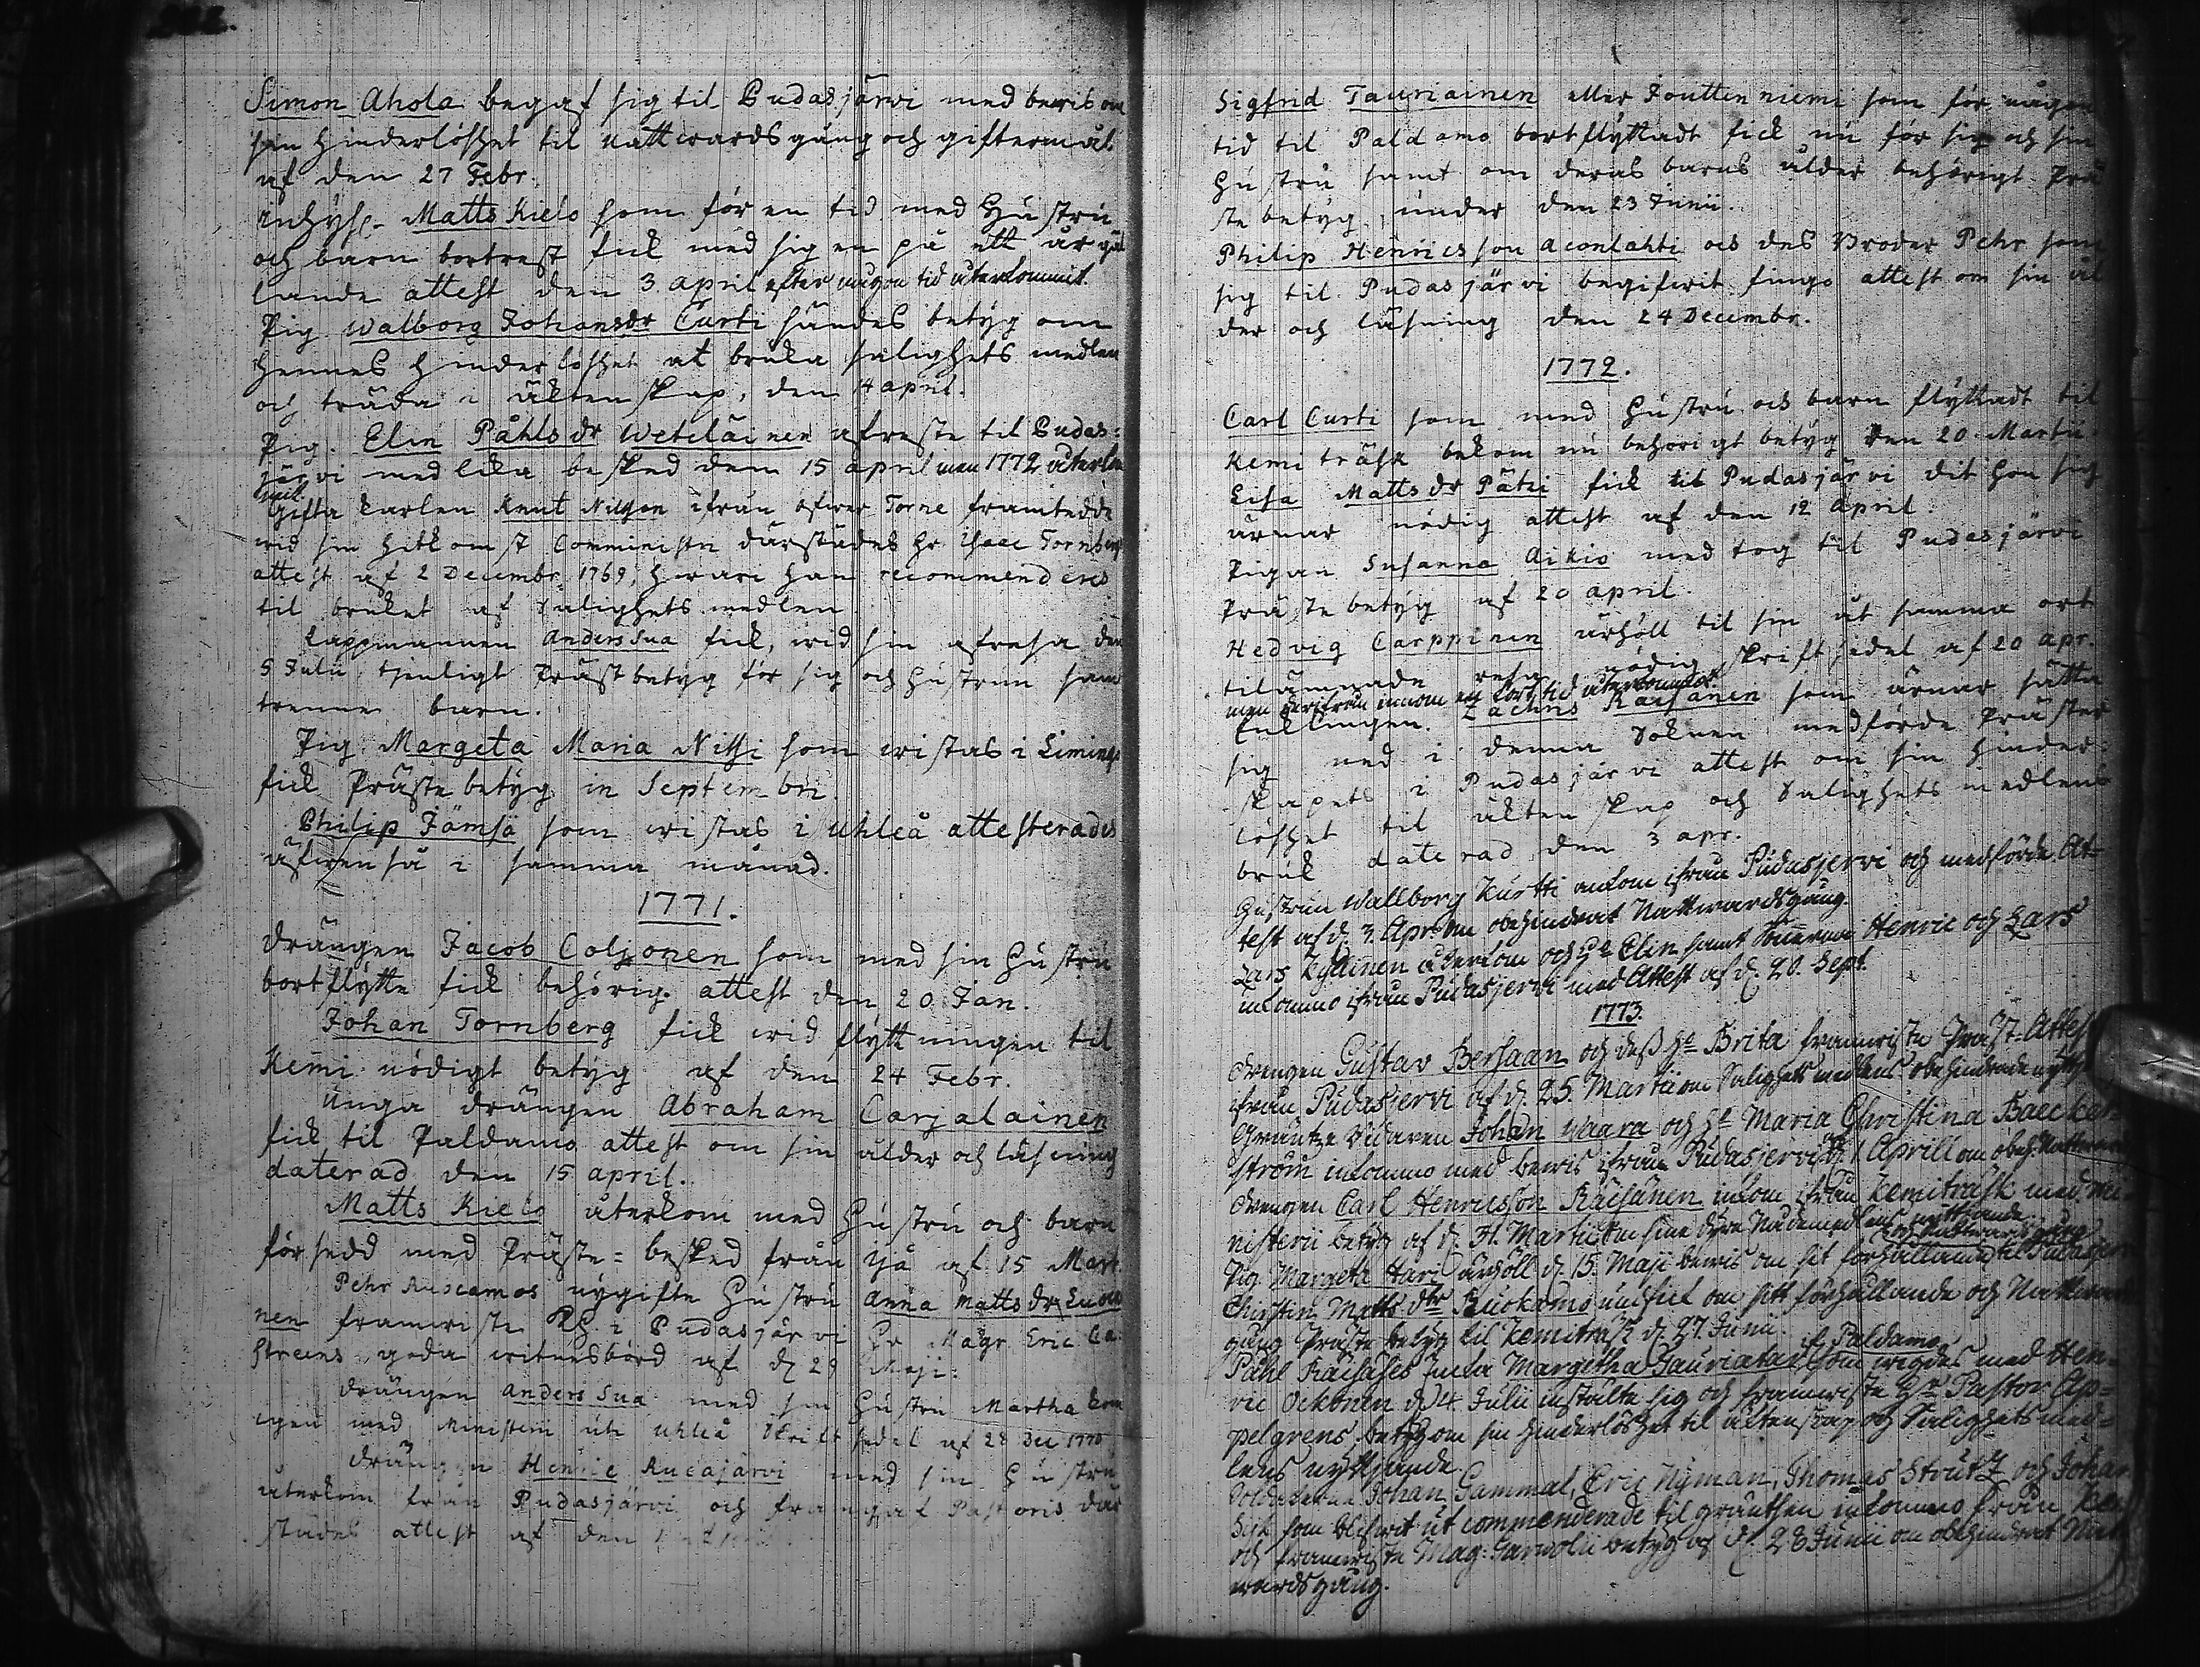 Simon Ahola begaf sig til Pudasjärwi med bewis om
sin hinderlöshet til nattwardsgång och giftermål
af den 27 Febr.
Inhyse. Matts Kielo som för en tid med Hustru
och barn bortrest fick med sig en på ett år gäl
lande attest den 3 april efter någon tid återkommit.
Pig. Walborg Johansdr Curti sändes betyg om
hennes hinderlöshet at bruka salighets medlen
och träda i äktenskap, den 14 april.
Pig. Elin Påhlsdr Weteläinen afreste til Pudas=
järvi med lika besked dem 15 april men 1772 återkom
mit.
Gifta karlen Knut Nilsson ifrån öfwer Torne framtedde
wid sin hitkomst Comministri därstädes Hr Isaac Tornbergs
attest af 2 Decembr. 1769, hwari han recommenderes
til bruket af Salighetsmedlen
Lappmannen Anders Sua fick, wid sin afresa den
5 Julii tjenligt Prästbetyg för sig och hustrun samt
trenne barn.
Pig. Margeta Maria Nissi som wistas i Limingo
fick Prästebetyg in Septembri.
Philip Jämsä som wistas i Uhleå attesterades
äfwenså i samma månad.
1771.
Drängen Jacob Coljonen som med sin Hustru
bortflytte fick behörig. attest den 20 Jan.
Johan Tornberg fick wid flyttningen til
Kemi nödigt betyg af den 24 Febr.
Unga drängen Abraham Carjalainen
fick til Paldamo attest om sin ålder och läsning
daterad den 15 april.
Matts Kielo återkom med Hustru och barn
försedd med Präste=besked från Ijå af 15 Mart.
Pehr Ruocamos nygifte Hustru Anna Mattsdr Luon
nen framwiste KH. i Pudasjärvi Hr Magr. Eric Ca
streens goda witnesbörd af d. 29 Maji.
Drängen Anders Sua med sin Hustru Martha kom
igen med Ministerii uti Uhleå Skriftsedel af 28 Dec 1770
Drängen Henric Rucajärvi med sin Hustru
återkom från Pudasjärvi och framgaf Pastoris där
städes attest af den
Sigfrid Tauriainen eller Jouttenniemi som för någon
tid til Paldamo bortflyttadt fick nu för sig och sin
Hustru samt om deras barns ålder behörigt Prä
stebetyg, under den 23 Junii.
Philip Henricsson Acontahti och des Broder Pehr som
sig til Pudasjärvi begifwit fingo attest om sin ål
der och läsning den 24 Decembr.
1772.
Carl Curti som med Hustru och barn flyttadt til
Kemi träsk bekom nu behörigt betyg den 20. Martii
Lisa Mattsdr Pätzi fick til Pudasjärvi dit hon sig
ärnar nödig attest af den 12 April.
Pigan Susanna Aikio medtog til Pudasjärvi
Prästebetyg af 20 april.
Hedvig Carppinen ärhöll til sin åt samma ort
tilämnade resa nödig skriftsedel af 20 apr.
men därifrån innom en kort tid återkommen.
Enklingen Zachris Räisänen som ärnar sätta
sig ned i denna Soknen medförde Präster
skapets i Pudasjärvi attest om sin hinder=
löshet til äktenskap och Salighets medlens
bruk daterad den 3 apr.
Hustrun Wallborg Kurtti ankom ifrån Pudasjervi och medförde At=
test af d. 3. Apr. om obehindrat Nattwardsgång.
Lars Kylainen återkom och H:o Elin samt Sönerne Henric och Lars
inkommo ifrån Pudasjervi med Attest af d. 20. Sept.
1773.
Drengen Gustav Bersaan och dess H:o Brita framwiste Präst-Attest
ifrån Pudasjervi af d. 25. Martii om Salighets medlens obehindrade nyttj
Gräntze Ridaren Johan Waara och H:o Maria Christina Baecker
ström inkommo med bewis ifrån Pudasjervi af d. 1 Aprill om obeh. Nattward
Drengen Carl Henricsson Räisänen inkom ifrån Kemiträsk med Mi
nisterii betyg af d. 31. Martii om sine dyre Nådemedlens nyttjande.
Pig. Margeta Hari ärhöll d. 15. Maji bewis om sit förhållande och Nattwardsgång til Pudasjer
Christin Mattsdtr Ruokamo undfick om sitt förhållande och Nattwar
gång Präste betyg til Kemiträsk d. 27. Junii.
Påhl Räisäses Enka Margetha Tauriatar af Paldamo som wigdes med Hen=
ric Ockonen d. 4. Julii instälte sig och framwiste Hr Pastor Ap=
pelgrens betyg om sin hinderlöshet til äktenskap och Salighets med=
lens nyttjande.
Soldaterne Johan Gammal, Eric Nyman, Thomas Stoutz och Johan
Sisk som blifwit ut commenderade til gräntsen inkommo från Ke
och framwiste Mag: Garnolii betyg af d. 28 Junii om obehindrat Natt
wardsgång.